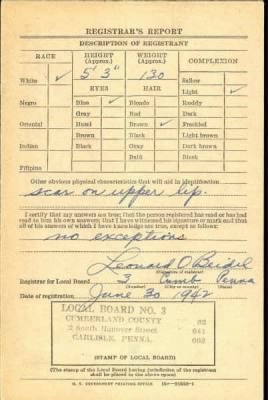 REGISTRAR'S REPORT
DESCRIPTION OF REGISTRANT
RACE HEIGHT (Approx.) WEIGHT (Approx.) COMPLEXION
White ✓ 5' 3" 130 Sallow
EYES HAIR Light ✓
Negro Blue ✓ Blonde Ruddy
Gray Red Dark
Oriental Hazel Brown ✓ Freckled
Brown Black Light brown
Indian Black Gray Dark brown
Bald Black
Filipino
Other obvious physical characteristics that will aid in identification
scar on upper lip.
I certify that my answers are true; that the person registered has read or has had read to him his own answers; that I have witnessed his signature or mark and that all of his answers of which I have knowledge are true, except as follows:
no exceptions
Leonard O Beidel
(Signature of registrar)
Registrar for Local Board 3 Cumb Penna
(Number) (City or county) (State)
Date of registration June 30 1942
LOCAL BOARD NO. 3 
CUMBERLAND COUNTY
2 South Hanover Street 041
CARLISLE, PENNA.
(STAMP OF LOCAL BOARD)
(The stamp of the Local Board having jurisdiction of the registrant shall be placed in the above space)
U. S. GOVERNMENT PRINTING OFFICE